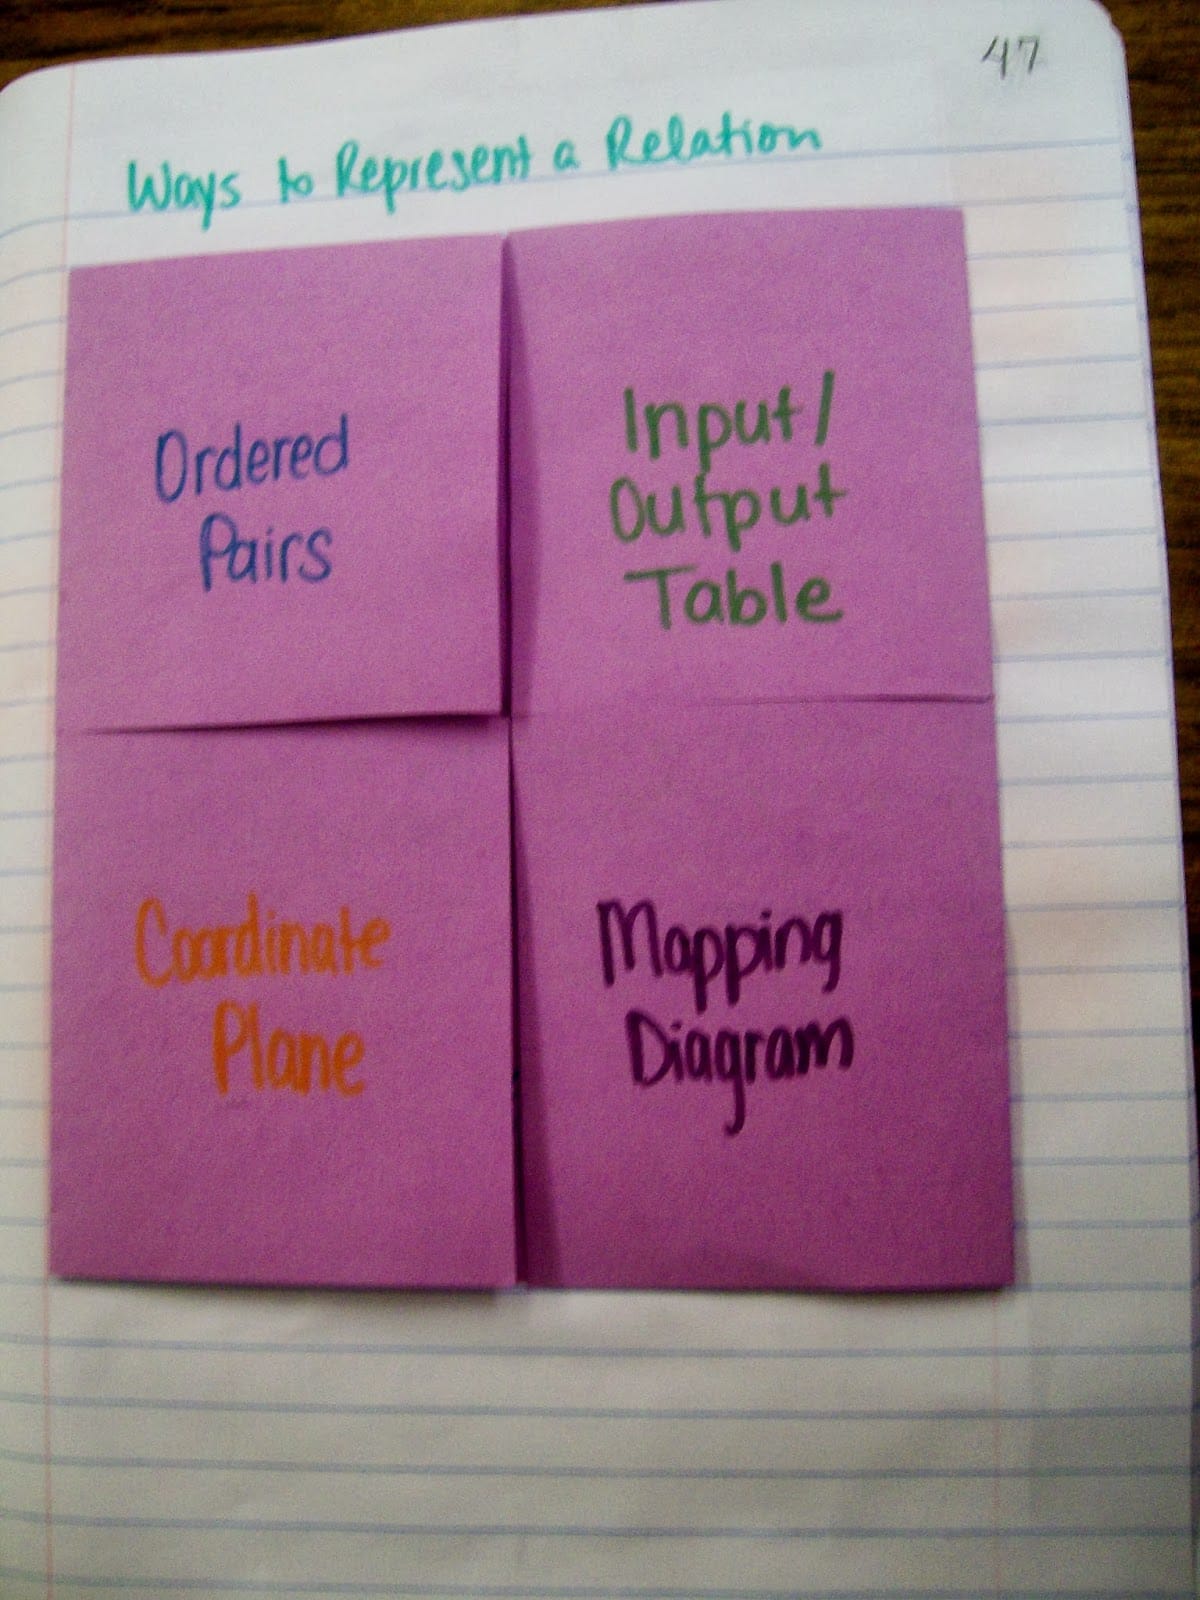 47
Ways to Represent a Relation
Ordered
Pairs
Input/
Output
Table
Coordinate
Plane
Mapping
Diagram